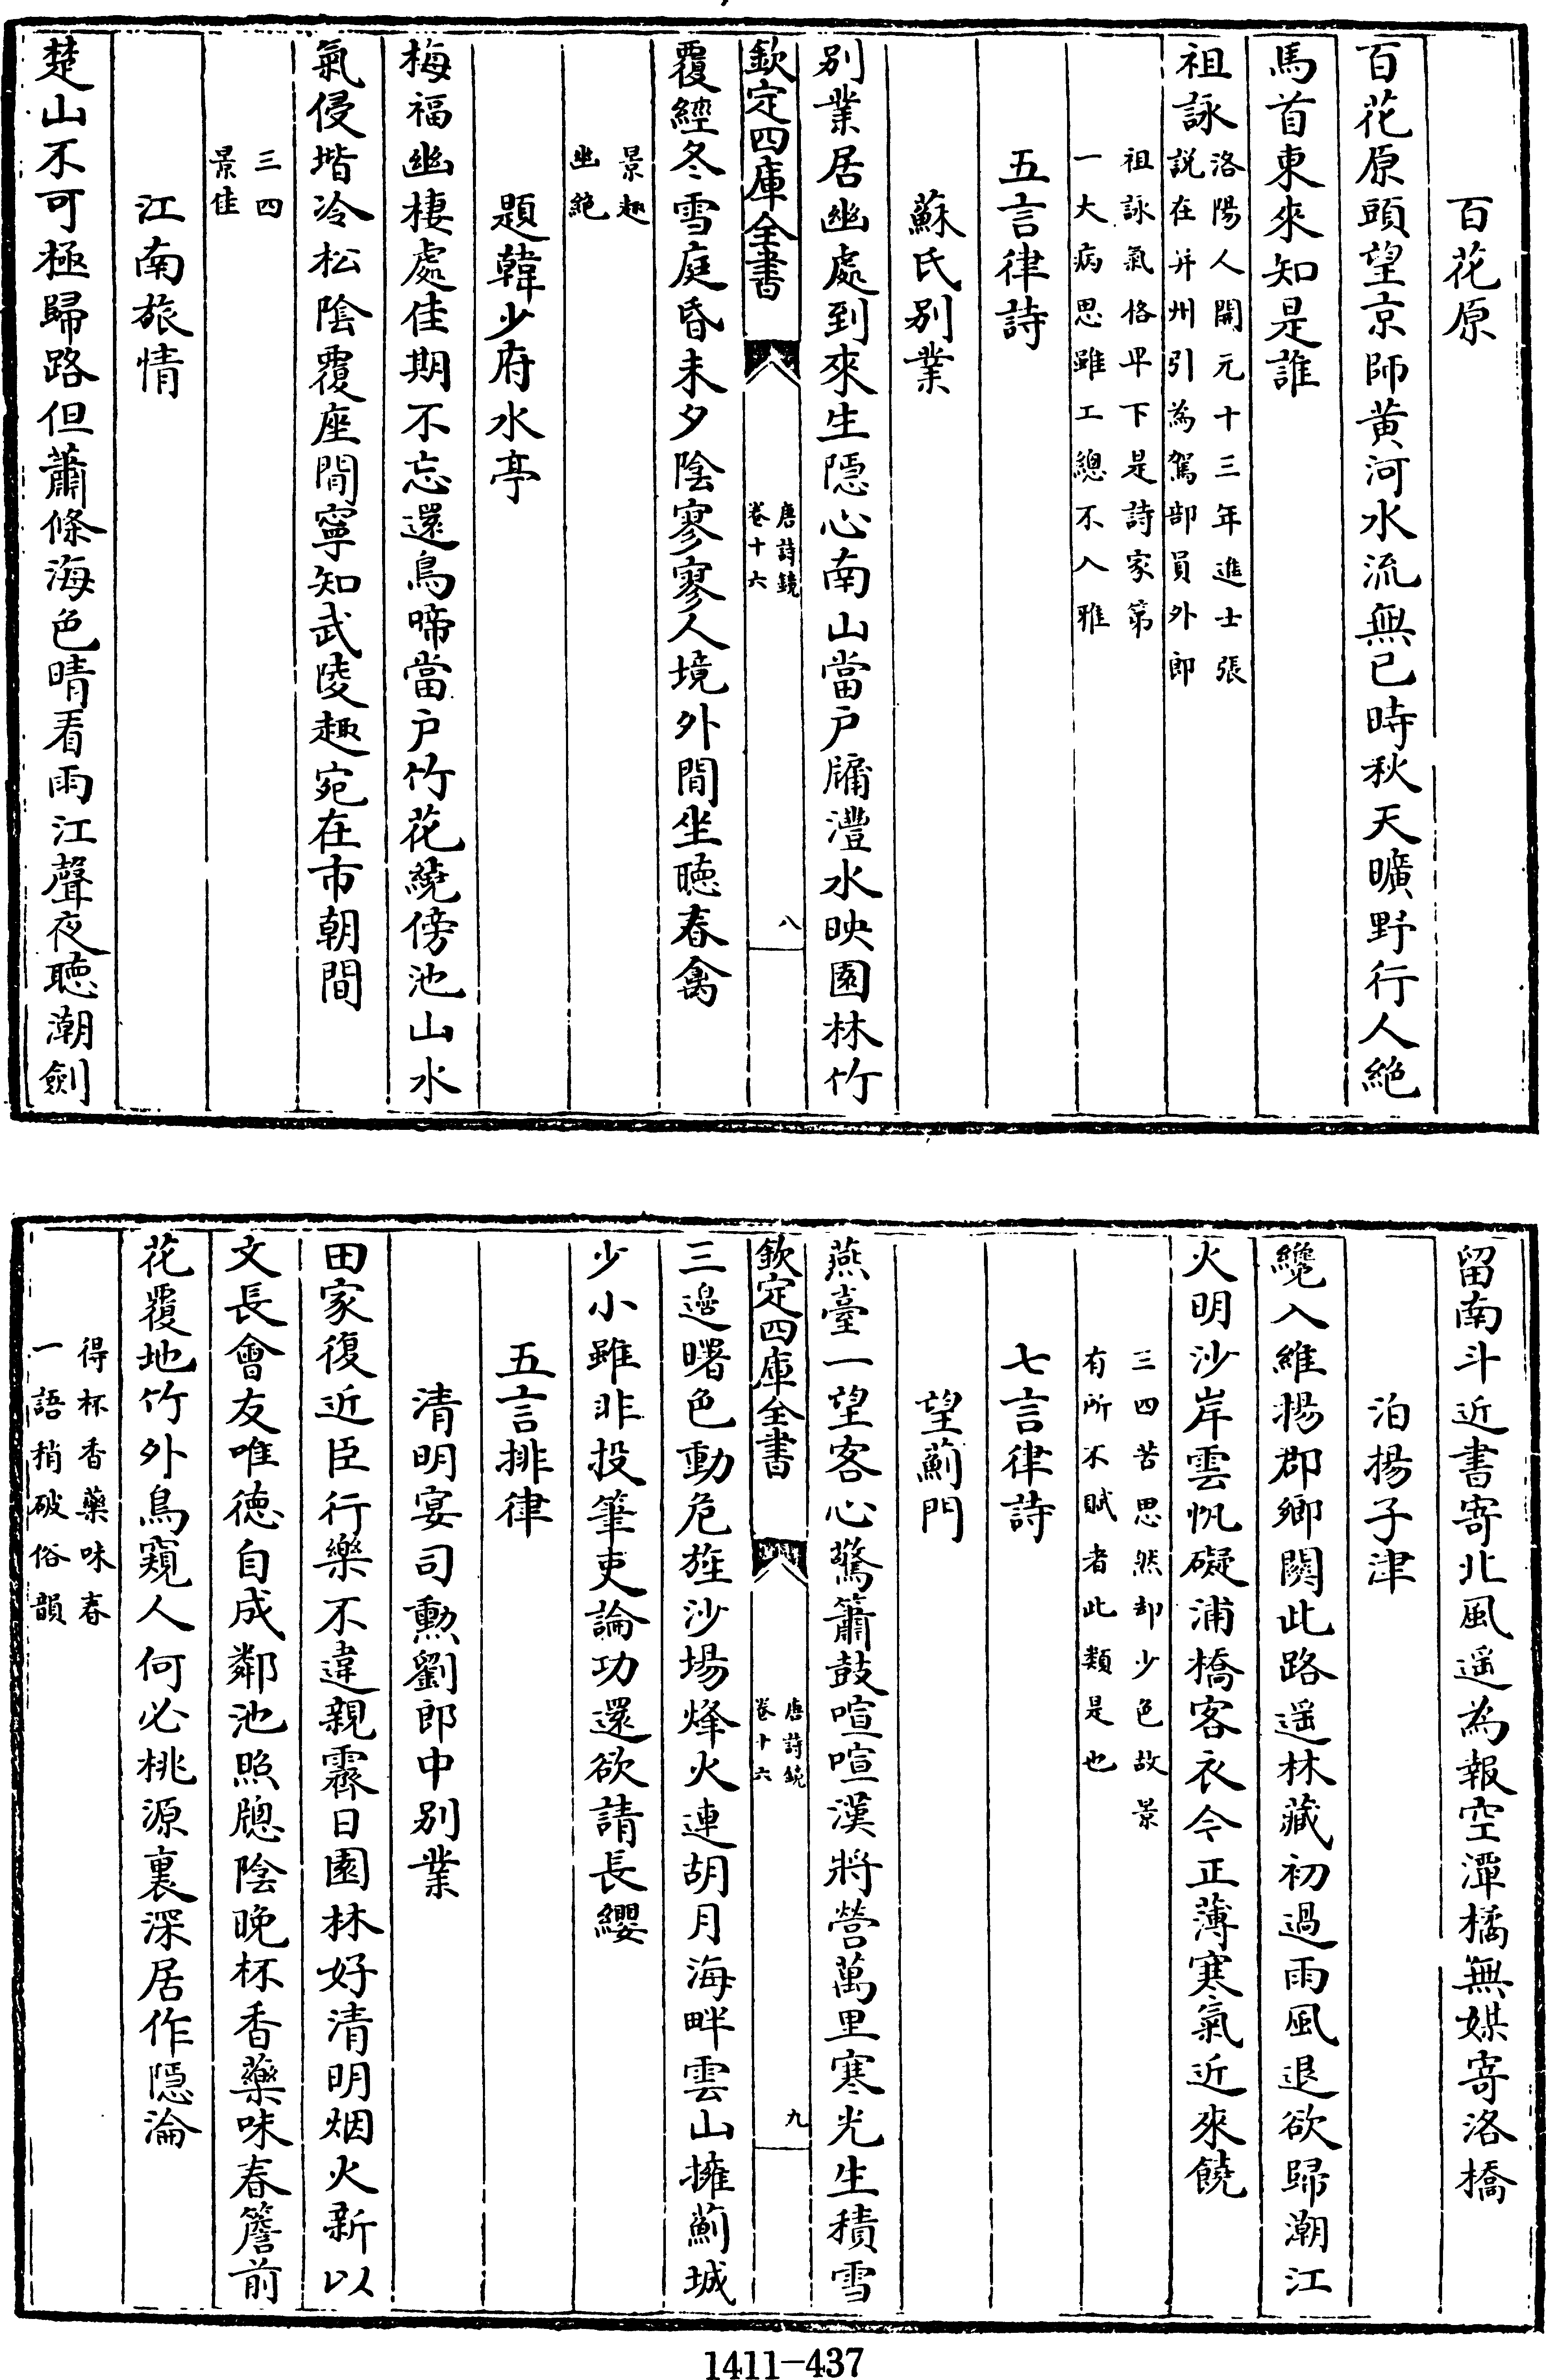 百花原
百花原頭望京師黄河水流無已時秋天曠野行人絶
馬首東來知是誰
祖詠洛陽人開元十三年進士張
説在并州引為駕部員外郎
祖詠氣格卑下是詩家第
一大病思雖工總不入雅
五言律詩
蘇氏别業
别業居幽處到來生隠心南山當户牖灃水映園林竹
欽定四庫全書
唐詩鏡
卷十六
八
覆經冬雪庭昏未夕陰寥寥人境外閒坐聴春禽
景趣
幽絶
題韓少府水亭
梅福幽棲處佳期不忘還鳥啼當户竹花繞傍池山水
氣侵堦冷松陰覆座閒寧知武陵趣宛在市朝間
三四
景佳
江南旅情
楚山不可極歸路但蕭條海色晴看雨江聲夜聴潮劍
留南斗近書寄北風遥為報空潭橘無媒寄洛橋
泊揚子津
纔入維揚郡鄉關此路遥林藏初過雨風退欲歸潮江
火明沙岸雲帆礙浦橋客衣今正薄寒氣近來饒
三四苦思然却少色故景
有所不賦者此類是也
七言律詩
望薊門
燕臺一望客心驚簫鼓喧喧漢將營萬里寒光生積雪
欽定四庫全書
唐詩鏡
卷十六
九
三邉曙色動危旌沙場烽火連胡月海畔雲山擁薊城
少小雖非投筆吏論功還欲請長纓
五言排律
清明宴司勳劉郎中别業
田家復近臣行樂不違親霽日園林好清明烟火新以
文長會友唯徳自成鄰池照牕陰晚杯香藥味春簷前
花覆地竹外鳥窺人何必桃源裏深居作隠淪
得杯香藥味春
一語稍破俗韻
1411-437